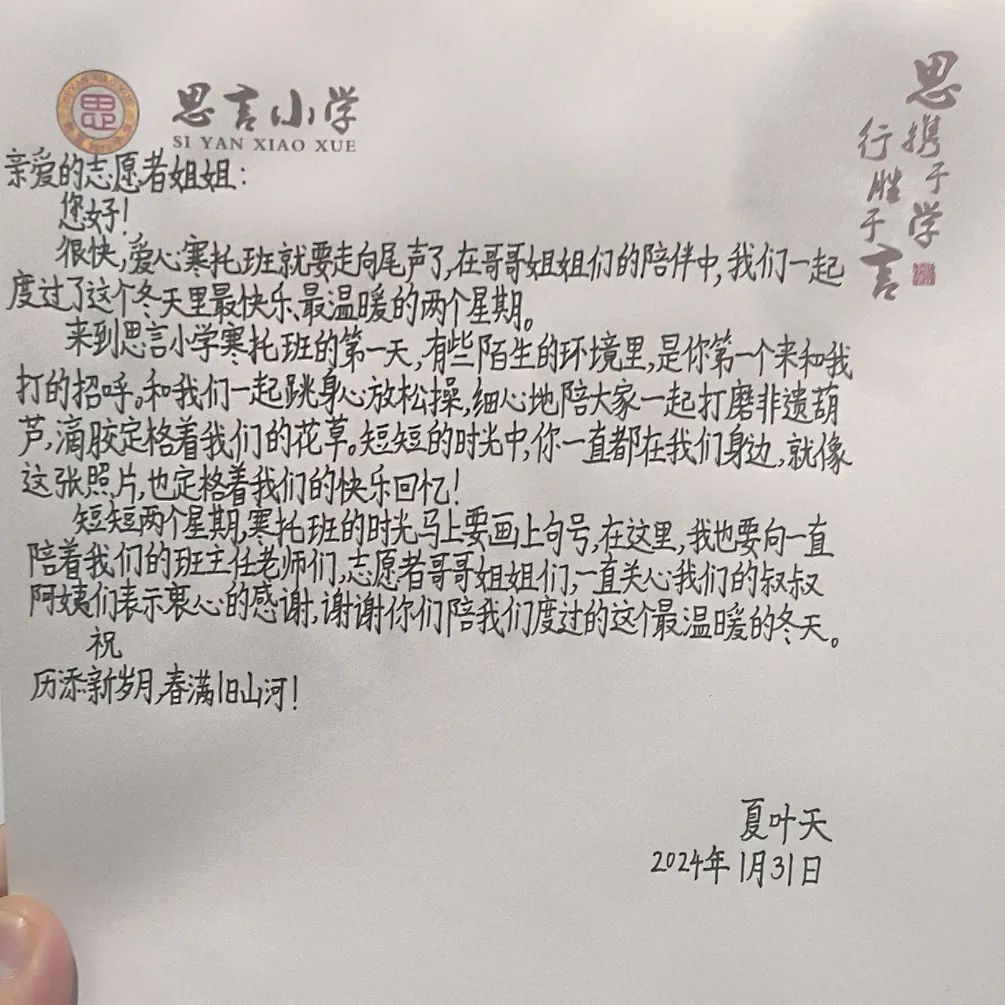 思言小学
SI YAN XIAO XUE
思携于学
行胜于言
亲爱的志愿者姐姐：
您好！
很快，爱心寒托班就要走向尾声了，在哥哥姐姐们的陪伴中，我们一起
度过了这个冬天里最快乐、最温暖的两个星期。
来到思言小学寒托班的第一天，有些陌生的环境里，是你第一个来和我
打的招呼。和我们一起跳身心放松操，细心地陪大家一起打磨非遗葫
芦，滴胶定格着我们的花草。短短的时光中，你一直都在我们身边，就像
这张照片，也定格着我们的快乐回忆！
短短两个星期，寒托班的时光马上要画上句号，在这里，我也要向一直
陪着我们的班主任老师们，志愿者哥哥姐姐们，一直关心我们的叔叔
阿姨们表示衷心的感谢，谢谢你们陪我们度过的这个最温暖的冬天。
祝
历添新岁月，春满旧山河！
夏叶天
2024年1月31日